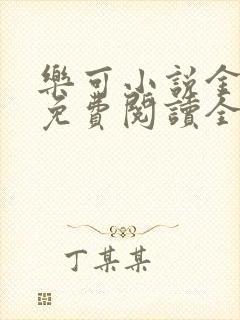 樂可小説全
免費閱讀全
丁某某